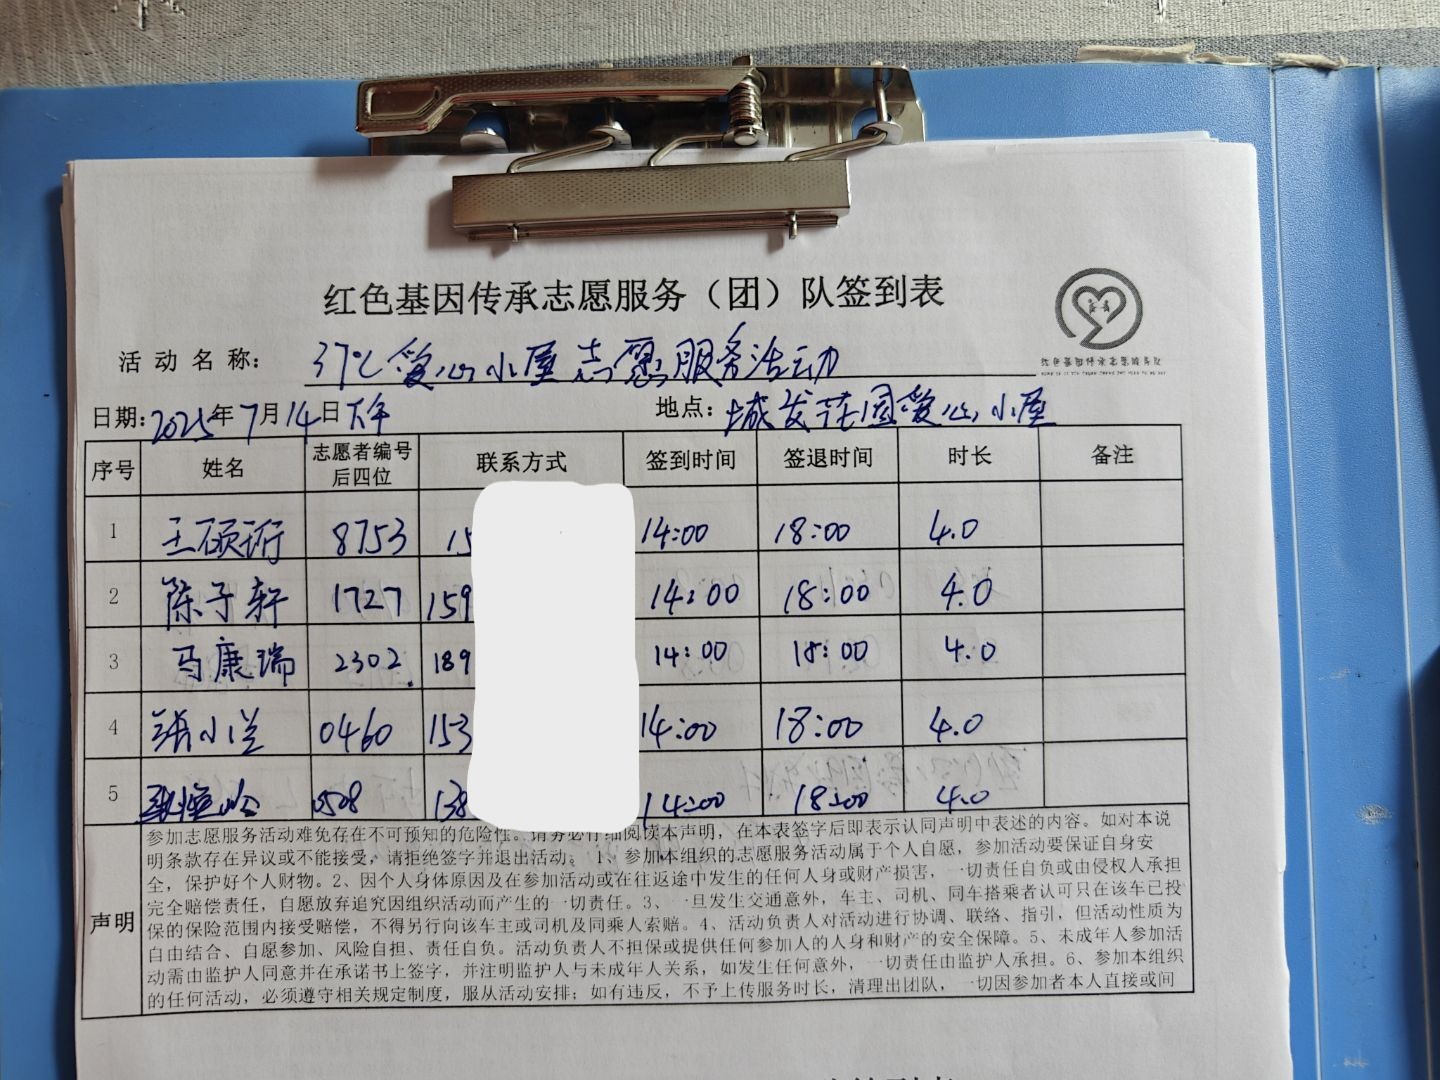 红色基因传承志愿服务（团）队签到表
活动名称：37℃爱心小屋志愿服务活动
日期：2025年7月14日下午 地点：城发花园爱心小屋
序号 姓名 志愿者编号后四位 联系方式 签到时间 签退时间 时长 备注
1 王硕珩 8753 15 14:00 18:00 4.0
2 陈子轩 1727 159 14:00 18:00 4.0
3 马康瑞 2302 189 14:00 18:00 4.0
4 张小兰 0460 153 14:00 18:00 4.0
5 0508 138 14:00 18:00 4.0
声明
参加志愿服务活动难免存在不可预知的危险性。请务必仔细阅读本声明，在本表签字后即表示认同声明中表述的内容。如对本说
明条款存在异议或不能接受，请拒绝签字并退出活动。 1、参加本组织的志愿服务活动属于个人自愿，参加活动要保证自身安
全，保护好个人财物。2、因个人身体原因及在参加活动或在往返途中发生的任何人身或财产损害，一切责任自负或由侵权人承担
完全赔偿责任，自愿放弃追究因组织活动而产生的一切责任。3、一旦发生交通意外，车主、司机、同车搭乘者认可只在该车已投
保的保险范围内接受赔偿，不得另行向该车主或司机及同乘人索赔。4、活动负责人对活动进行协调、联络、指引，但活动性质为
自由结合、自愿参加、风险自担、责任自负。活动负责人不担保或提供任何参加人的人身和财产的安全保障。5、未成年人参加活
动需由监护人同意并在承诺书上签字，并注明监护人与未成年人关系，如发生任何意外，一切责任由监护人承担。6、参加本组织
的任何活动，必须遵守相关规定制度，服从活动安排；如有违反，不予上传服务时长，清理出团队，一切因参加者本人直接或间